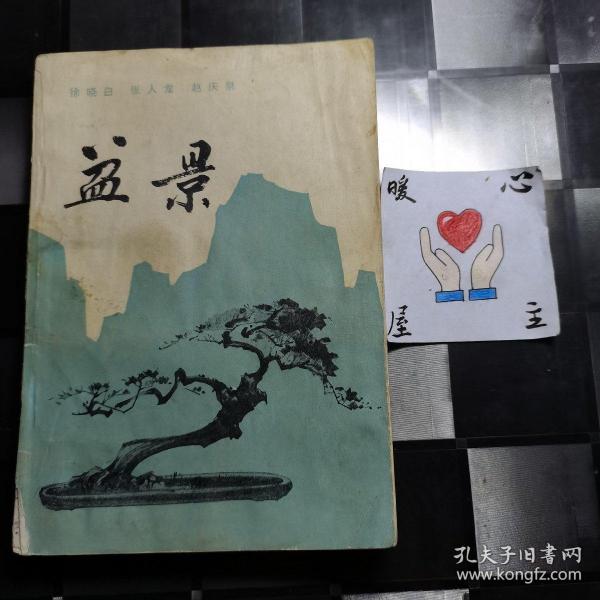 徐晓白 张人龙 赵庆泉
盆景
暖心
屋主
孔夫子旧书网
www.kongfz.com